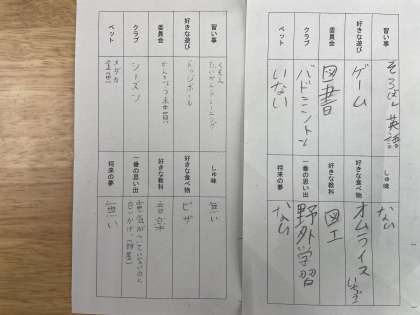 習い事
そろばん 英語
好きな遊び
ゲーム
委員会
図書
クラブ
バドミントン
ペット
いない
しゅ味
ない
好きな食べ物
オムライス
好きな教科
図工
一番の思い出
野外学習
将来の夢
ない
習い事
くもん
好きな遊び
ドッジボール
委員会
クラブ
シーズン
ペット
メダカ
しゅ味
無い
好きな食べ物
ピザ
好きな教科
音楽
一番の思い出
将来の夢
無い